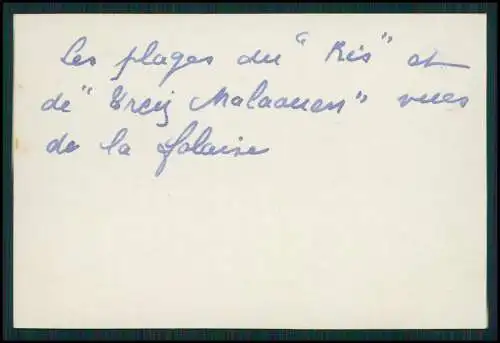 Les plages du "Ris" et
de "Treiz Malaouen" vues
de la falaise